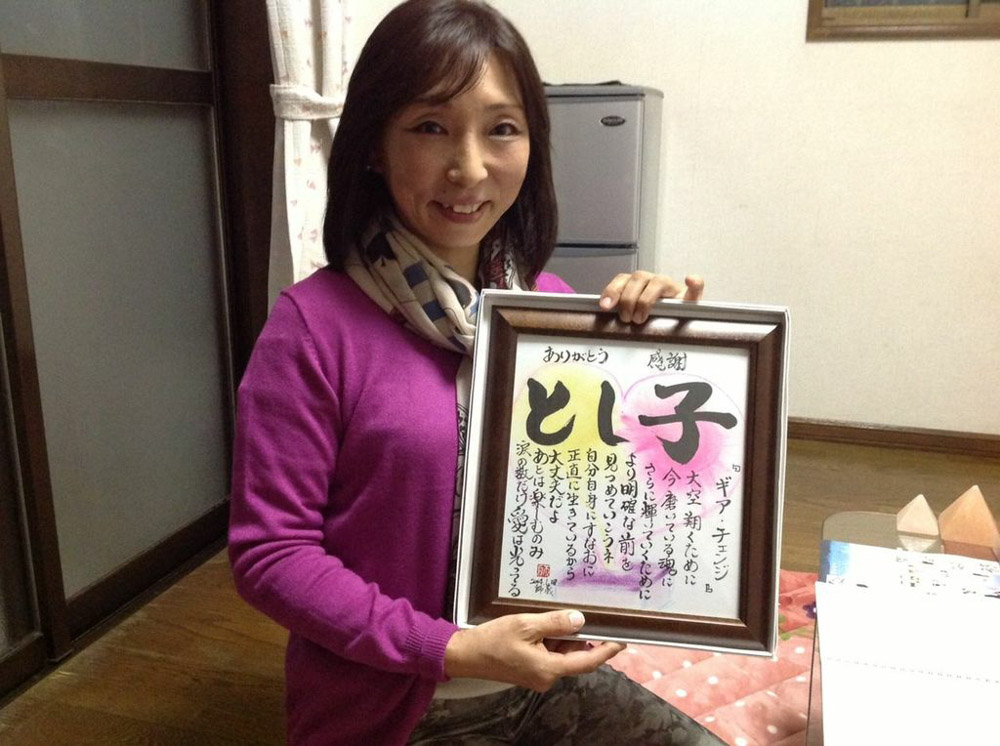 ありがとう 感謝
とし子
『ギア・チェンジ』
大空翔くために
今磨いている魂に
さらに輝いていくために
より明確な前を
見つめていこうネ
自分自身にすなおに
正直に生きているから
大丈夫だよ
あとは楽しむのみ
涙の数だけ愛は光ってる